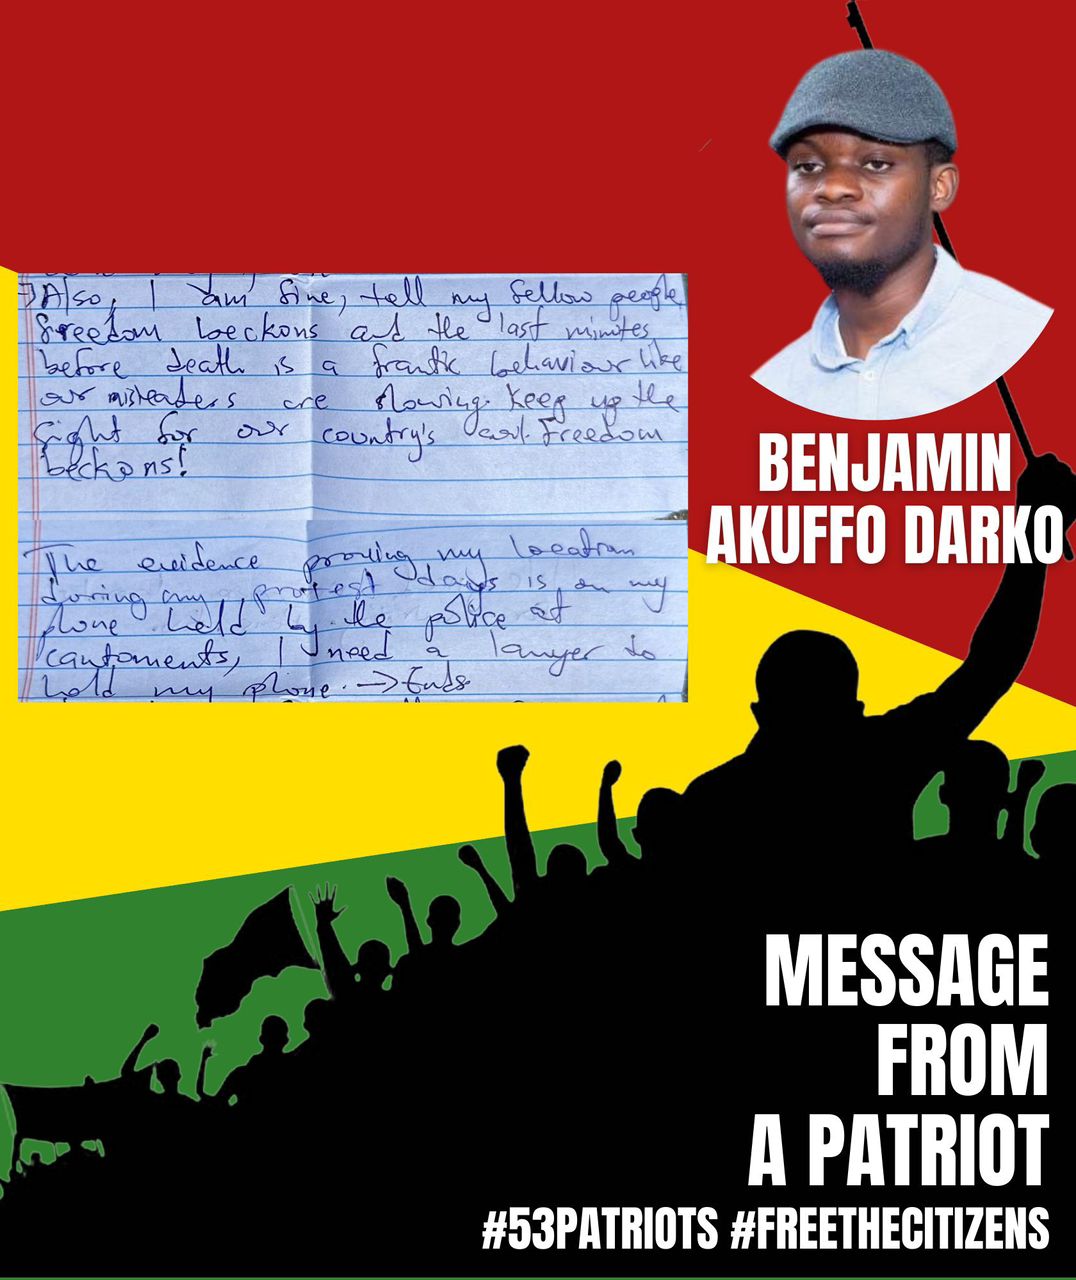 →Also, I am fine, tell my fellow people
freedom beckons and the last minutes
before death is a frantic behaviour like
our misleaders are showing. Keep up the
fight for our country's Freedom
beckons!
The evidence proving my location
during my protest days is on my
phone held by the police at
cantoments, I need a lawyer to
hold my phone. → Ends
BENJAMIN
AKUFFO DARKO
MESSAGE
FROM
A PATRIOT
#53PATRIOTS #FREETHECITIZENS